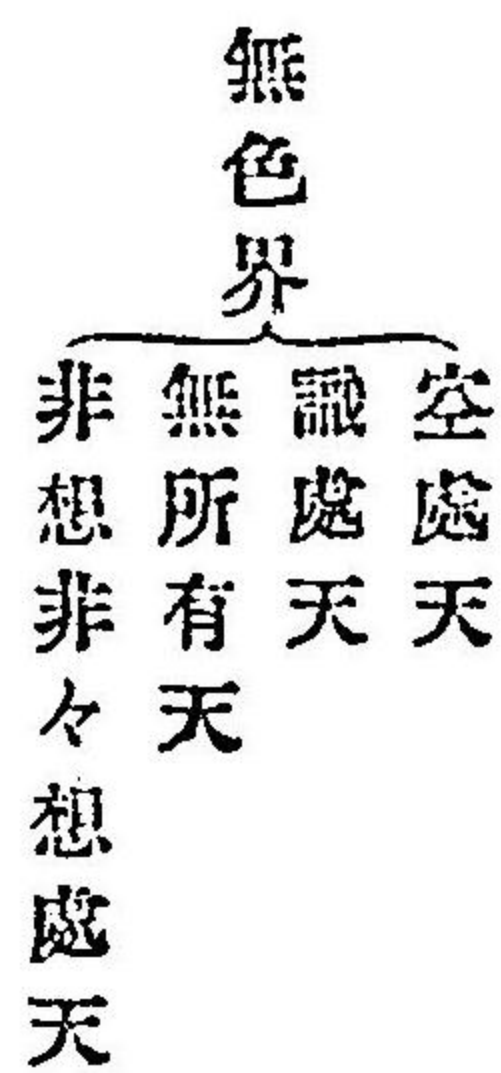 無色界
空處天
識處天
無所有天
非想非々想處天